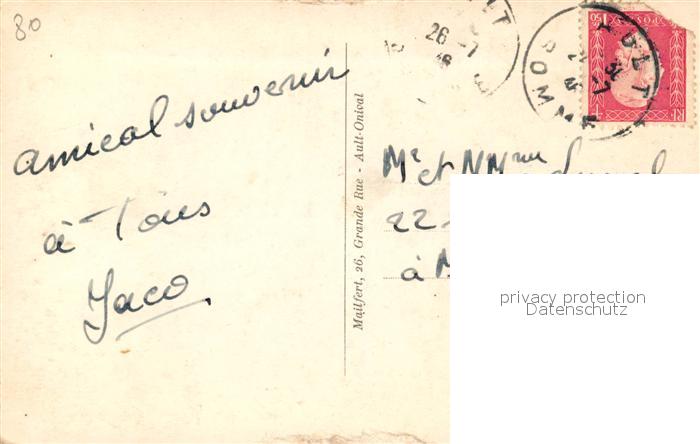 80
amical souvenir
à Tous
Jaco
Mailfert, 26, Grande Rue - Ault-Onival
26 -7
AULT
SOMME
1F50
RF
Mr et
22
à
privacy protection
Datenschutz